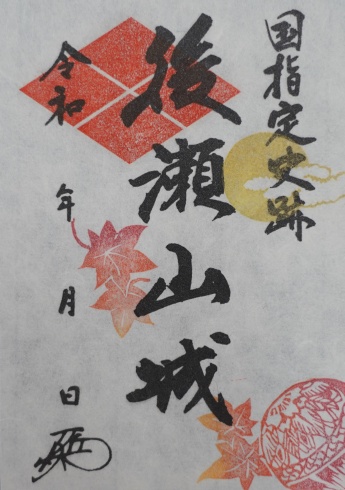 国指定史跡
後瀬山城
令和
年
月
日